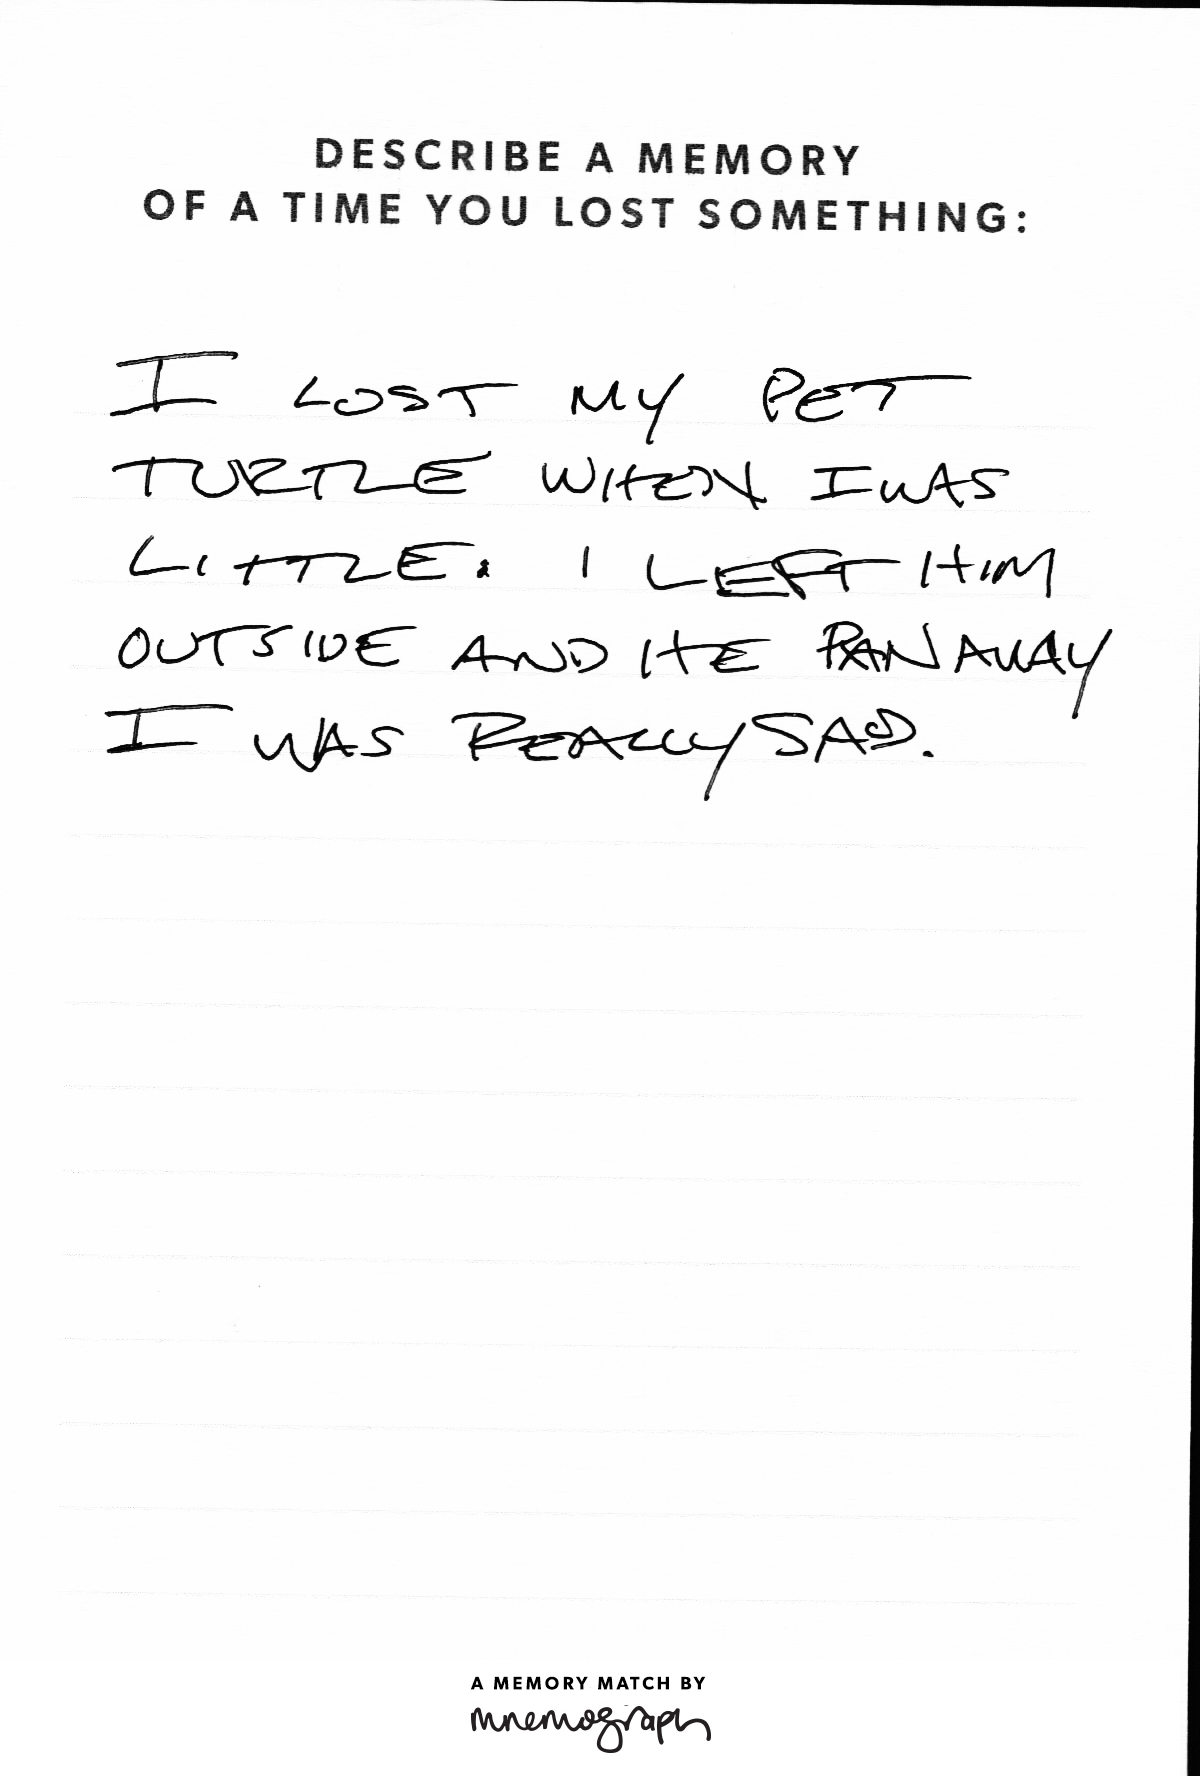 DESCRIBE A MEMORY
OF A TIME YOU LOST SOMETHING:
I LOST MY PET
TURTLE WHEN I WAS
LITTLE. I LEFT HIM
OUTSIDE AND HE RAN AWAY
I WAS REALLY SAD.
A MEMORY MATCH BY
mnemograph